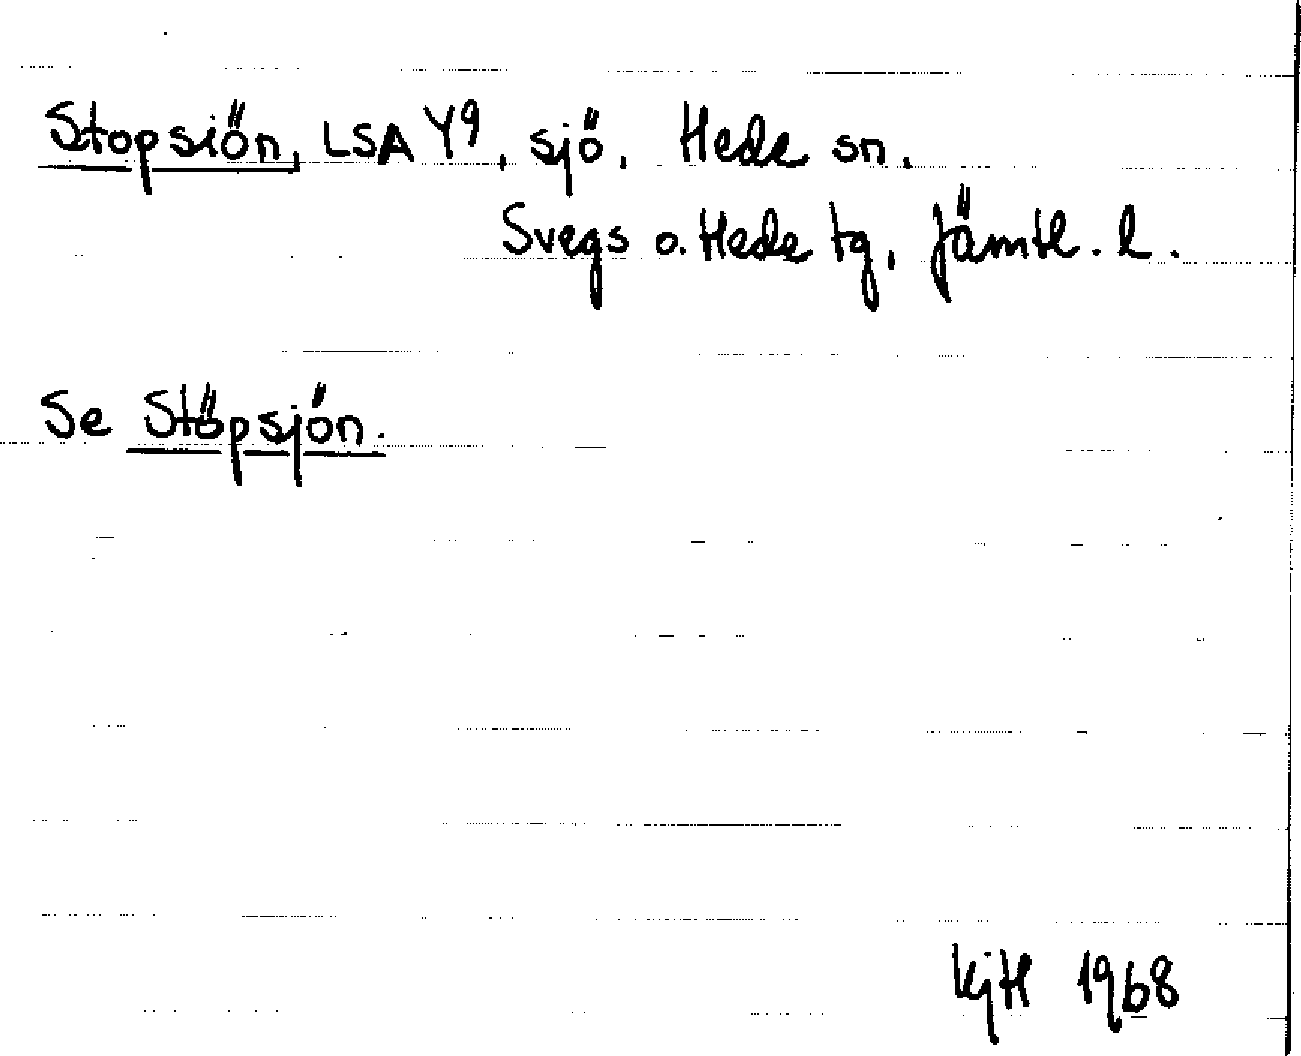 Stopsiön, LSA Y9, sjö, Hede sn,
Svegs o. Hede tg, Jämtl. l.
Se Stöpsjön.
KjH 1968